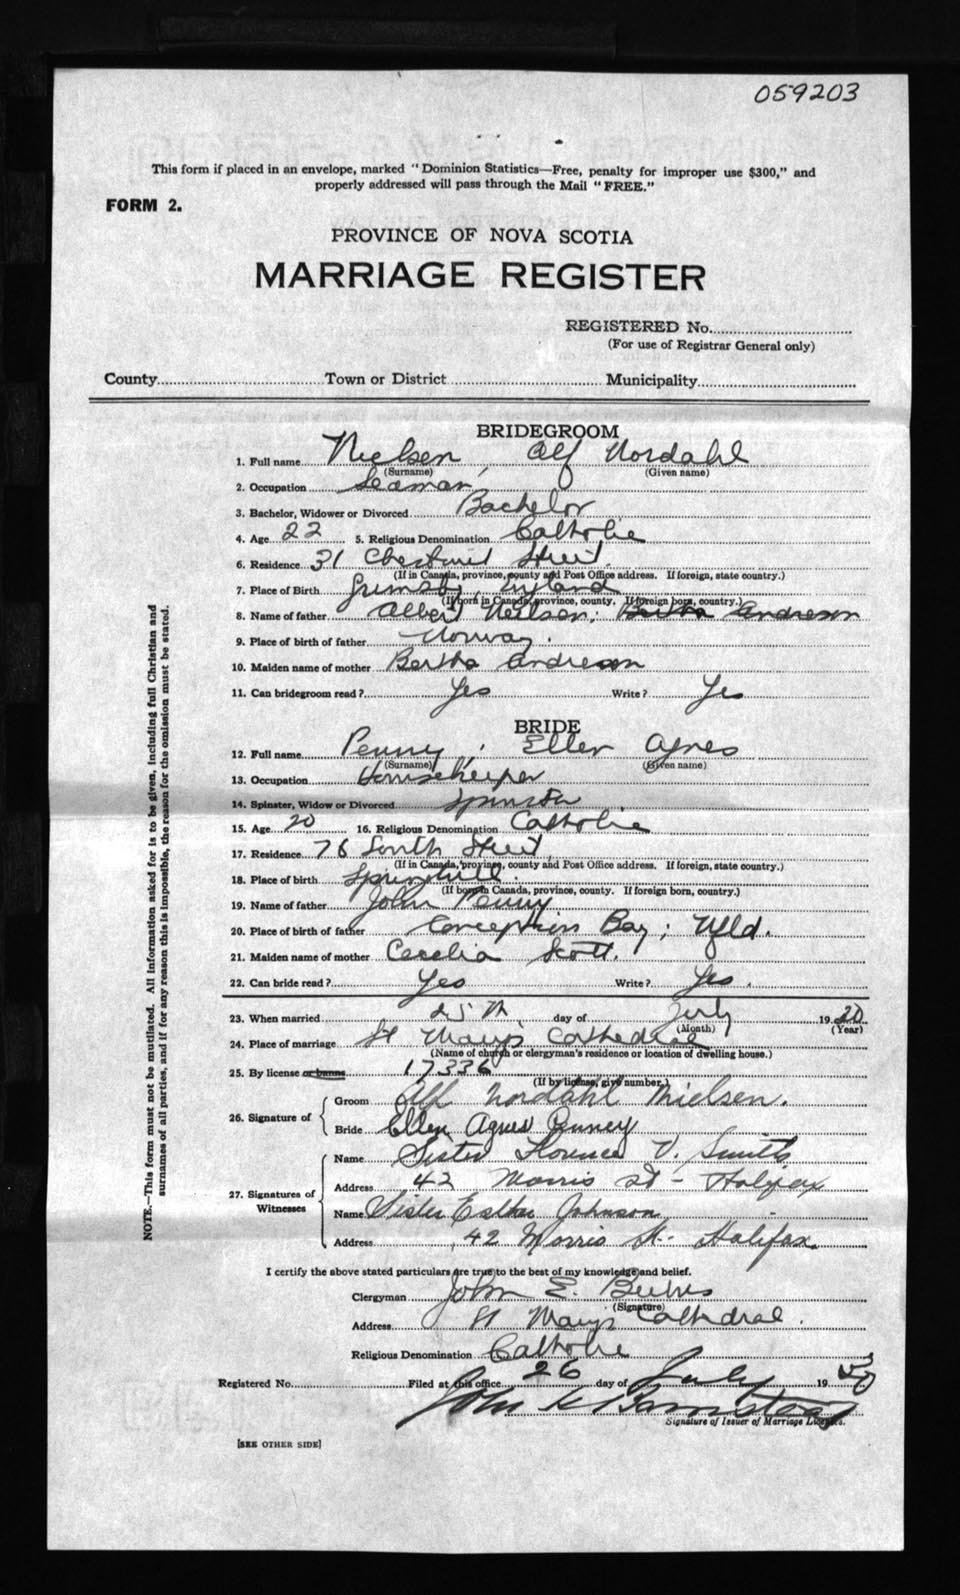 059203
This form if placed in an envelope, marked "Dominion Statistics—Free, penalty for improper use $300," and
properly addressed will pass through the Mail "FREE."
FORM 2.
PROVINCE OF NOVA SCOTIA
MARRIAGE REGISTER
REGISTERED No.
(For use of Registrar General only)
County Town or District Municipality
BRIDEGROOM
1. Full name Nielsen, Alf Nordahl
(Surname) (Given name)
2. Occupation Seaman
3. Bachelor, Widower or Divorced Bachelor
4. Age 22 5. Religious Denomination Catholic
6. Residence 31 Chestnut Street
(If in Canada, province, county and Post Office address. If foreign, state country.)
7. Place of Birth Grimsby, England
(If born in Canada, province, county. If foreign born, country.)
8. Name of father Albert Neilsen; Bertha Andresen
9. Place of birth of father Norway.
10. Maiden name of mother Bertha Andresen
11. Can bridegroom read? Yes Write? Yes
BRIDE
12. Full name Penny, Ellen Agnes
(Surname) (Given name)
13. Occupation Housekeeper
14. Spinster, Widow or Divorced Spinster
15. Age 20 16. Religious Denomination Catholic
17. Residence 76 South Street
(If in Canada, province, county and Post Office address. If foreign, state country.)
18. Place of birth Springhill.
(If born in Canada, province, county. If foreign born, country.)
19. Name of father John Penny
20. Place of birth of father Conception Bay; Nfld.
21. Maiden name of mother Cecelia Scott.
22. Can bride read? Yes Write? Yes.
23. When married 25th day of July 19
(Month) (Year)
24. Place of marriage St Mary's Cathedral
(Name of church or clergyman's residence or location of dwelling house.)
25. By license or banns 17336
(If by license, give number.)
26. Signature of
Groom Alf Nordahl Nielsen.
Bride Ellen Agnes Penney
27. Signatures of Witnesses
Name Sister Florence V. Smith
Address 42 Morris St - Halifax
Name Sister Esther Johnson
Address 42 Morris St. Halifax.
I certify the above stated particulars are true to the best of my knowledge and belief.
Clergyman John E. Burns
(Signature)
Address St Mary's Cathedral.
Religious Denomination Catholic
Registered No. Filed at this office 26 day of July 19 50
John H Barnstead
Signature of Issuer of Marriage Licenses.
[SEE OTHER SIDE]
NOTE.—This form must not be mutilated. All information asked for is to be given, including full Christian and
surnames of all parties, and if for any reason this is impossible, the reason for the omission must be stated.